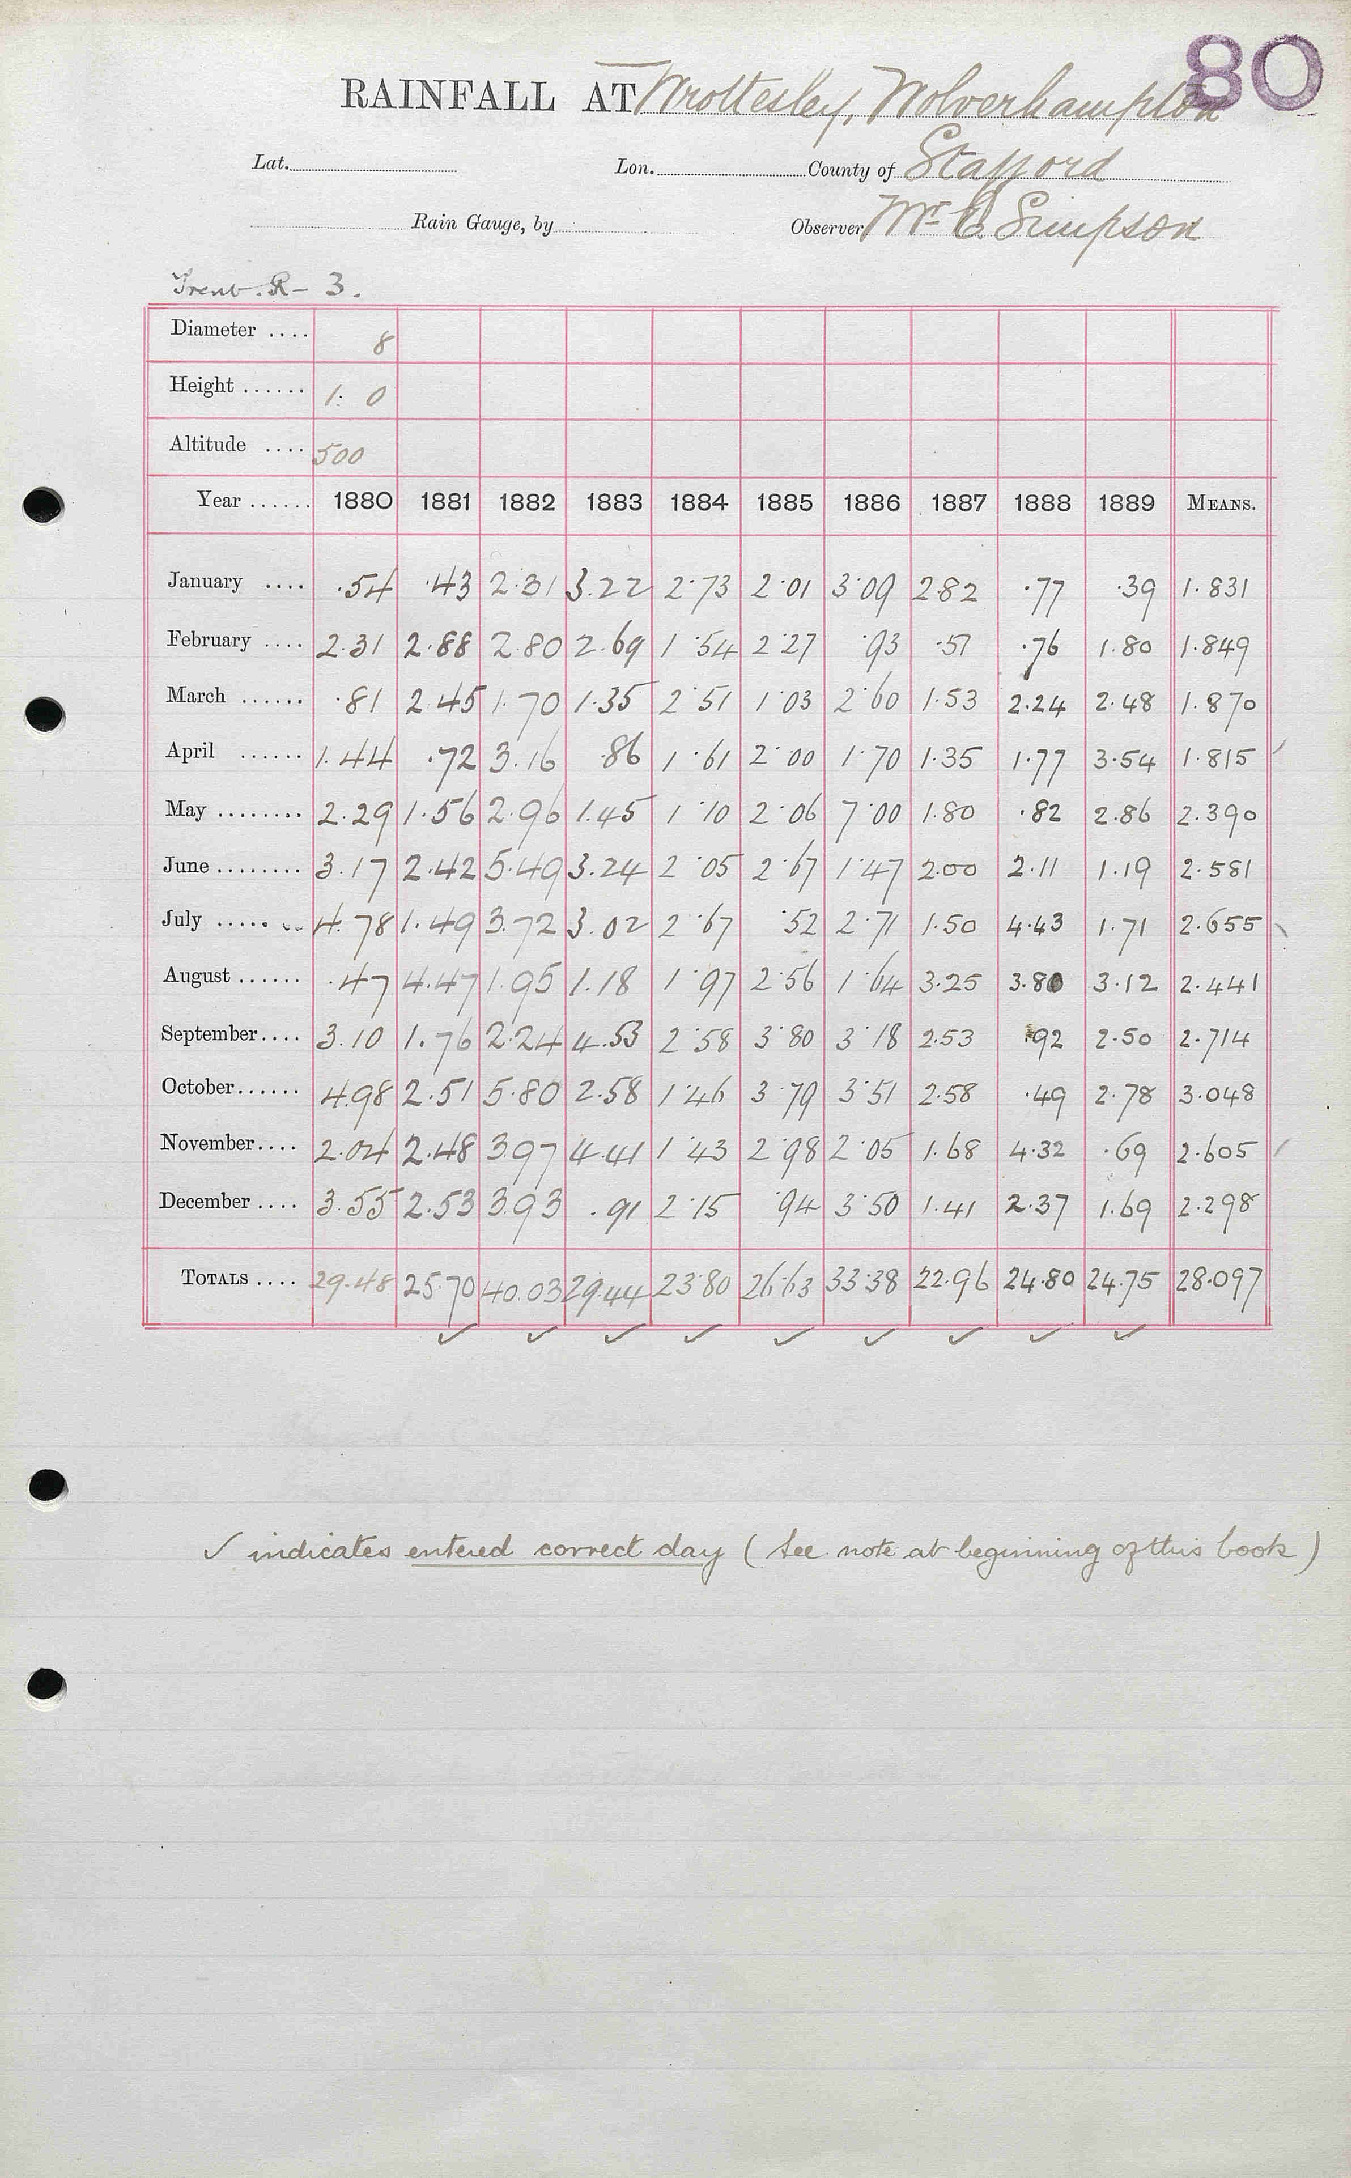 80
RAINFALL AT Wrottesley, Wolverhampton
Lat. Lon. County of Stafford
Rain Gauge, by Observer Mr C. Simpson
Trent. R - 3.
Diameter .... 8
Height ...... 1. 0
Altitude .... 500
Year ...... 1880 1881 1882 1883 1884 1885 1886 1887 1888 1889 MEANS.
January .... .54 .43 2.31 3.22 2.73 2.01 3.09 2.82 .77 .39 1.831
February .... 2.31 2.88 2.80 2.69 1.54 2.27 .93 .51 .76 1.80 1.849
March ...... .81 2.45 1.70 1.35 2.51 1.03 2.60 1.53 2.24 2.48 1.870
April ...... 1.44 .72 3.16 .86 1.61 2.00 1.70 1.35 1.77 3.54 1.815
May ........ 2.29 1.56 2.96 1.45 1.10 2.06 7.00 1.80 .82 2.86 2.390
June ........ 3.17 2.42 5.49 3.24 2.05 2.67 1.47 2.00 2.11 1.19 2.581
July ..... 4.78 1.49 3.72 3.02 2.67 .52 2.71 1.50 4.43 1.71 2.655
August ...... .47 4.47 1.95 1.18 1.97 2.56 1.64 3.25 3.80 3.12 2.441
September.... 3.10 1.76 2.24 4.53 2.58 3.80 3.18 2.53 .92 2.50 2.714
October...... 4.98 2.51 5.80 2.58 1.46 3.79 3.51 2.58 .49 2.78 3.048
November.... 2.04 2.48 3.97 4.41 1.43 2.98 2.05 1.68 4.32 .69 2.605
December .... 3.55 2.53 3.93 .91 2.15 .94 3.50 1.41 2.37 1.69 2.298
TOTALS .... 29.48 25.70 40.03 29.44 23.80 26.63 33.38 22.96 24.80 24.75 28.097
✓ ✓ ✓ ✓ ✓ ✓ ✓ ✓ ✓
✓ indicates entered correct day (See note at beginning of this book)